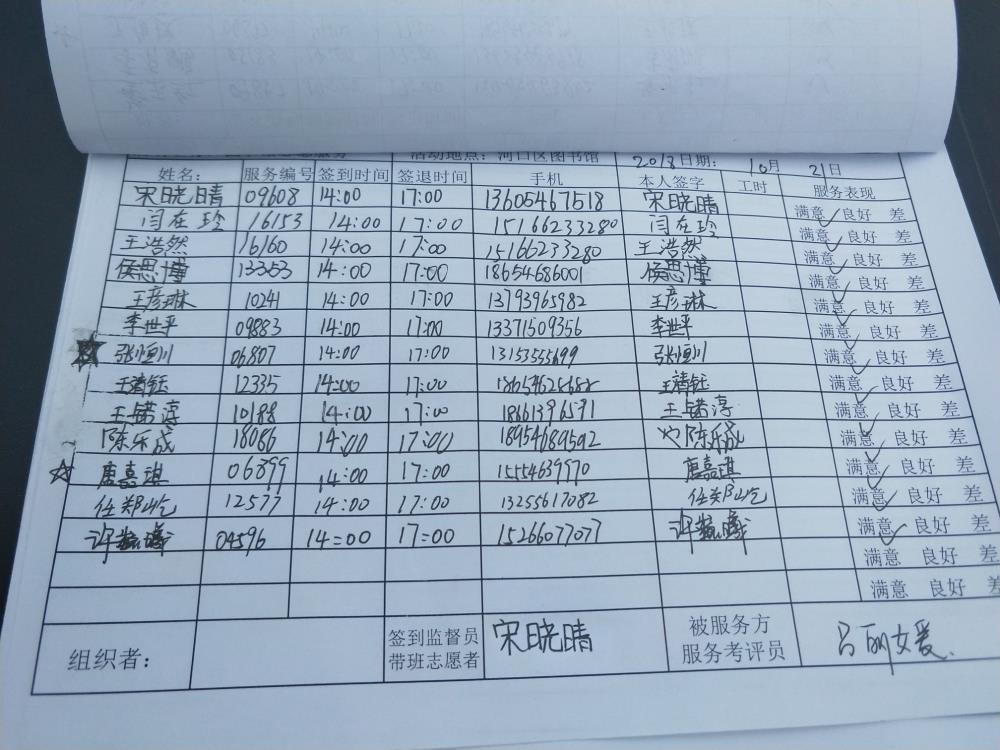 活动地点：河口区图书馆 2018日期：10月21日
姓名： 服务编号 签到时间 签退时间 手机 本人签字 工时 服务表现
宋晓晴 09608 14:00 17:00 13605467518 宋晓晴 满意 良好 差
闫在玲 16153 14:00 17:00 15166233280 闫在玲 满意 良好 差
王浩然 16160 14:00 17:00 15166233280 王浩然 满意 良好 差
侯思博 13353 14:00 17:00 18654686001 侯思博 满意 良好 差
王彦琳 10241 14:00 17:00 13793965982 王彦琳 满意 良好 差
李世平 09883 14:00 17:00 13371509356 李世平 满意 良好 差
张恒川 06807 14:00 17:00 13153555699 张恒川 满意 良好 差
王清钰 12335 14:00 17:00 王清钰 满意 良好 差
王锘淳 10188 14:00 17:00 18661396591 王锘淳 满意 良好 差
陈乐成 18086 14:00 17:00 18954689592 陈乐成 满意 良好 差
唐嘉淇 06899 14:00 17:00 15554639970 唐嘉淇 满意 良好 差
任郑屹 12577 14:00 17:00 13255617082 任郑屹 满意 良好 差
许 04596 14:00 17:00 15266077077 许 满意 良好 差
满意 良好 差
满意 良好 差
组织者： 签到监督员 宋晓晴 被服务方 吕丽媛
带班志愿者 服务考评员